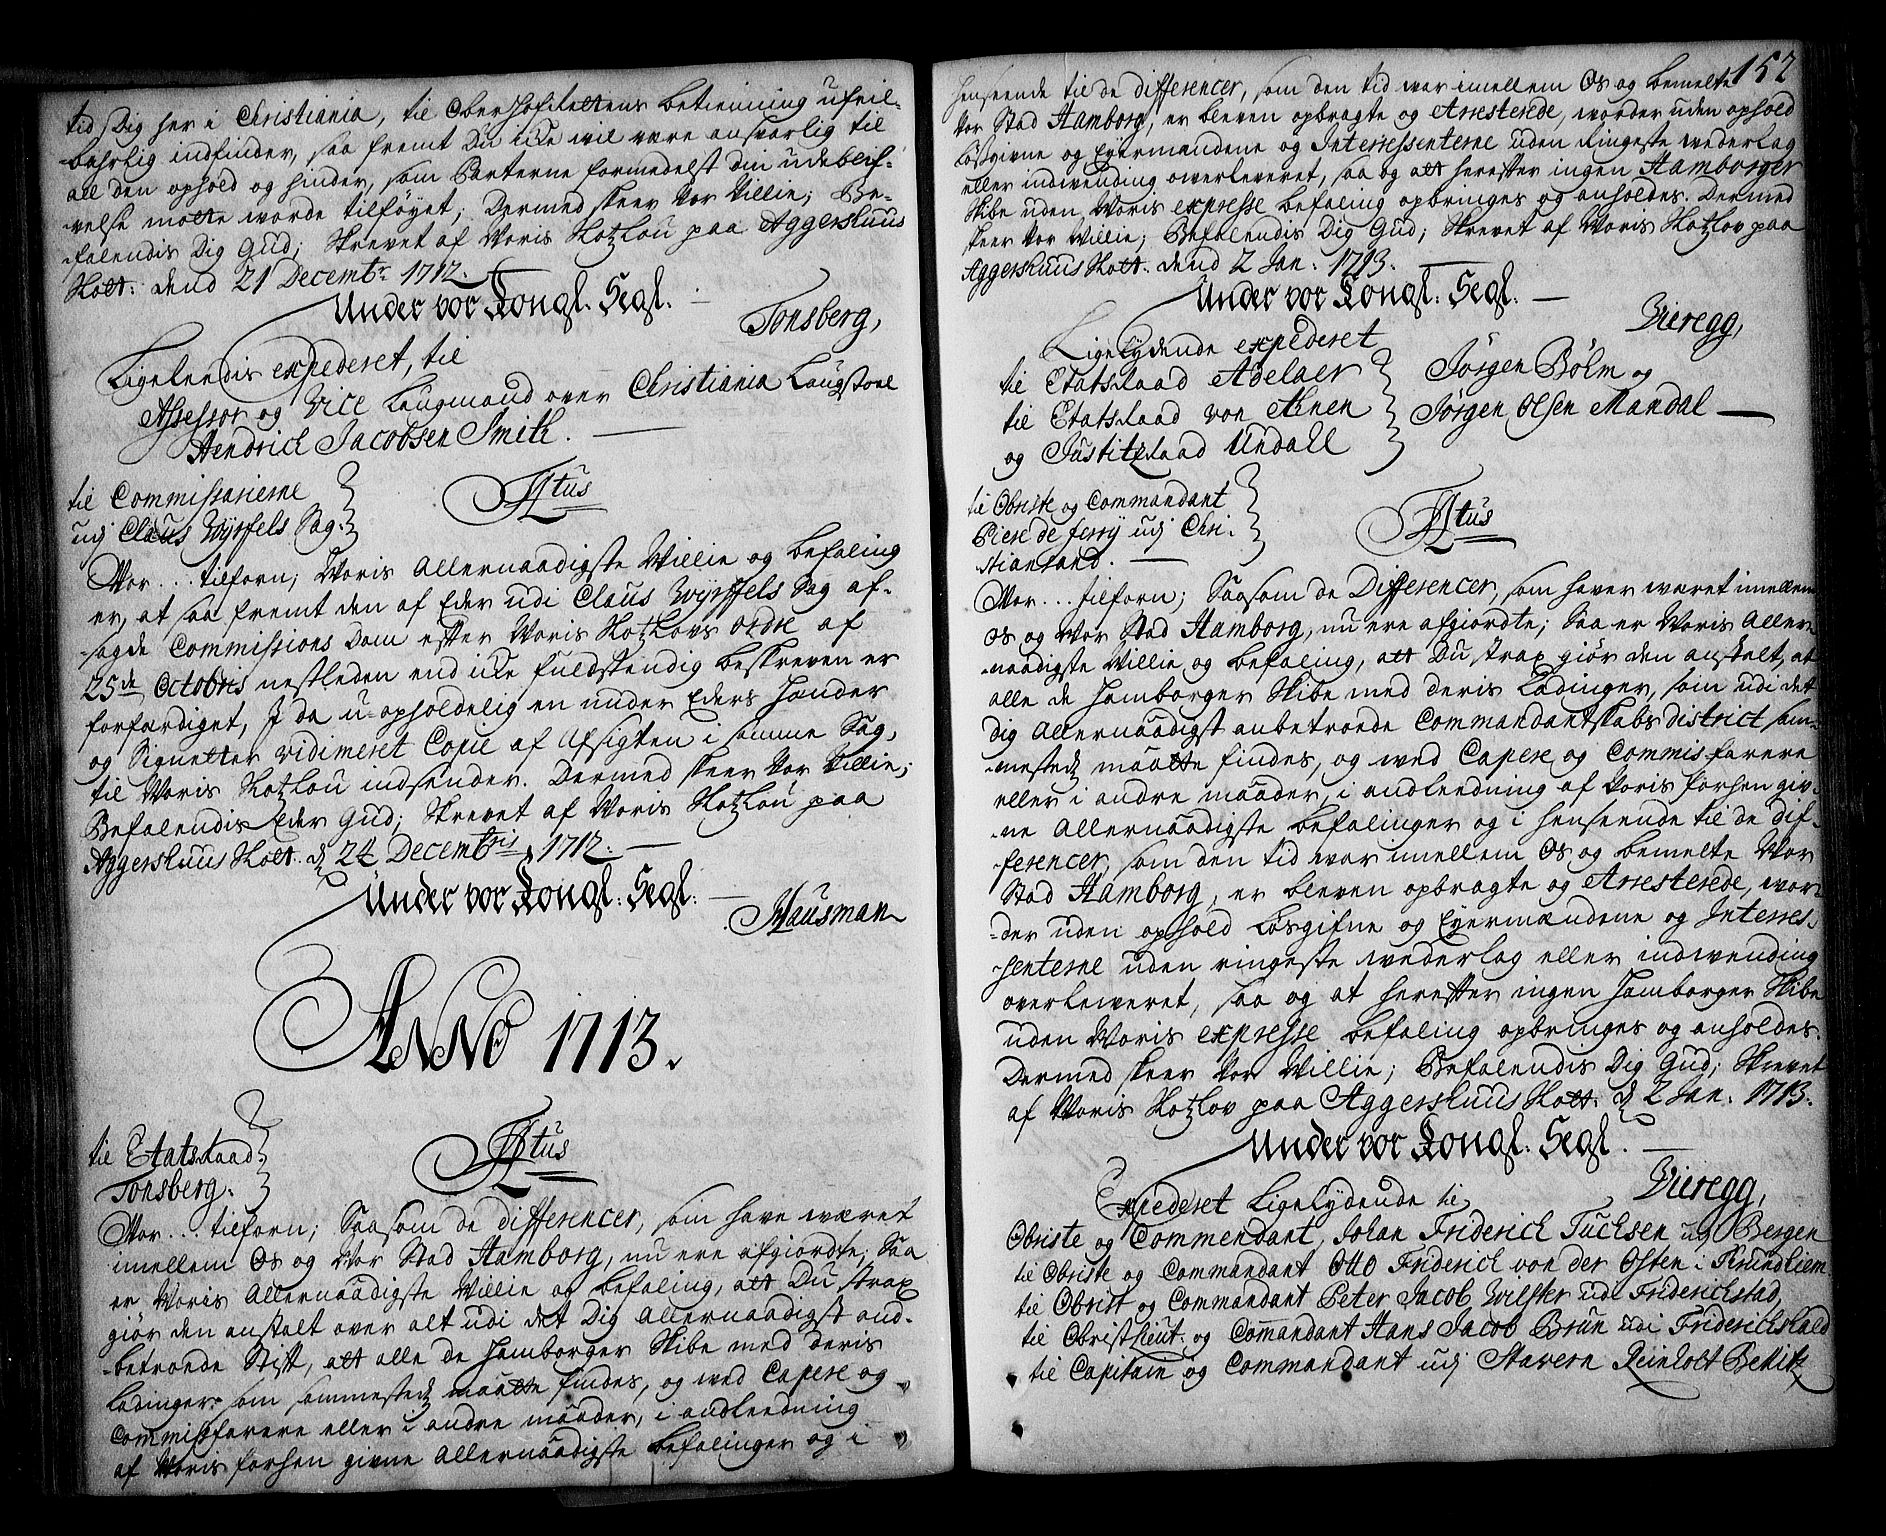 tid Dig her i Christiania, til OberHofRettens betienning ufeil-
bahrlig indfinder, saa fremt Du icke vil være ansvarlig til
all den ophold og hinder, som Parterne formedelst din udeblif-
velse motte worde tilføyet; Dermed skeer Vor Villie; Be-
falendis Dig Gud; Skrevet af Voris Slotzlou paa Aggershuus
Slott. dend 21 Decembr. 1712.
Under vor Kongl: Segl.
Tonsberg,
Ligeleedis expederet, til
Assessor og Vice Laugmand over Christiania Laugstoel
Hendrich Jacobsen Smith.
til Commissarierne
udj Claus Wyrffels Sag.
Tit:
Vor... tilforn; Voris Allernaadigste Villie og befaling
er, at saa fremt den af Eder udi Claus Wyrffels Sag af-
sagde Commissions Dom efter Voris Slotzlovs ordre af
25de Octobris nestleden end icke fuldstendig beskreven er
forfærdiget, I da u-opholdelig en under Eders Hænder
og Signetter vidimeret Copie af Afsigten i samme Sag,
til Voris Slotzlou indsender. Dermed skeer Vor Villie;
Befalendis Eder Gud; Skrevet af Voris Slotzlou paa
Aggershuus Slott. d. 24 Decembris 1712.
Under vor Kongl: Segl.
Hausman
Anno 1713.
til Etatsraad
Tonsberg.
Tit:
Vor... tilforn; Saasom de differencer, som have wæret
imellem Os og Vor Stad Hamborg, nu ere afgiordte; Saa
er Voris Allernaadigste Villie og befaling, att Du strax
giør den anstalt over alt udi det Dig Allernaadigst an-
betroede Stift, att alle de Hamborger Skibe med deris
Ladinger som sammestedz maatte findes, og wed Capere og
Commissfarere eller i andre maader, i anleedning
af Voris forhen givne Allernaadigste befalinger og i
152
henseende til de differencer, som den tid war imellem Os og bemelte
Vor Stad Hamborg, er bleven opbragte og Arresterede, worder uden ophold
Løsgivne og Eyermændene og Interressenterne uden Ringeste wederlag
eller indwending overleveret, saa og att herefter ingen Hamborger
Skibe uden Voris expresse befaling opbringes og anholdes. Dermed
skeer Vor Willie; Befalendis Dig Gud; Skrevet af Voris Slotzlov paa
Aggershuus Slott. dend 2 Jan: 1713.
Under vor Kongl: Segl.
Vieregg,
Ligelydende expederet
til Etatsraad Adelaer
til Etatsraad von Ahnen
og Justitzraad Undall
Jørgen Bøhm og
Jørgen Olsen Mandal
til Obriste og Commandant
Piere de Ferry udj Chri-
stiansand.
Tit:
Vor... tilforn; Saasom de Differencer, som haver wæret imellem
os og Vor Stad Hamborg, nu ere afgiordte; Saa er Voris Aller-
naadigste Villie og befaling, att Du strax giør den anstalt, at
alle de Hamborger Skibe med deris Ladinger, som udi det
Dig Allernaadigst anbetroede Commandantskabs district sam-
mestedz maatte findes, og wed Capere og Commisfarere
eller i andre maader, i andleedning af Voris forhen giv-
ne Allernaadigste befalinger og i henseende til de dif-
ferencer, som den tid war imellem Os og bemelte Vor
Stad Hamborg, er bleven opbragte og Arresterede, wor-
der uden ophold Løsgifne og Eyermændene og Interres-
senterne uden ringeste wederlag eller indwending
overleweret, saa og at herefter ingen Hamborger Skibe
uden Voris expresse befaling opbringes og anholdes.
Dermed skeer Vor Villie; Befalendis Dig Gud; Skrevet
af Voris Slotzlov paa Aggershuus Slott. d. 2 Jan: 1713.
Under vor Kongl: Segl.
Vieregg,
Expederet Ligelydende til
Obriste og Commendant, Johan Friderich Tuchsen udj Bergen
til Obriste og Commandant Otto Friderich von der Osten i Trundhiem
til Obrist og Commandant Peter Jacob Wilster udi Friderichstad,
til Obristlieut: og Commandant Hans Jacob Brun udi Friderichshald
til Capitain og Commandant udj Stavern Reinholt Bekitz